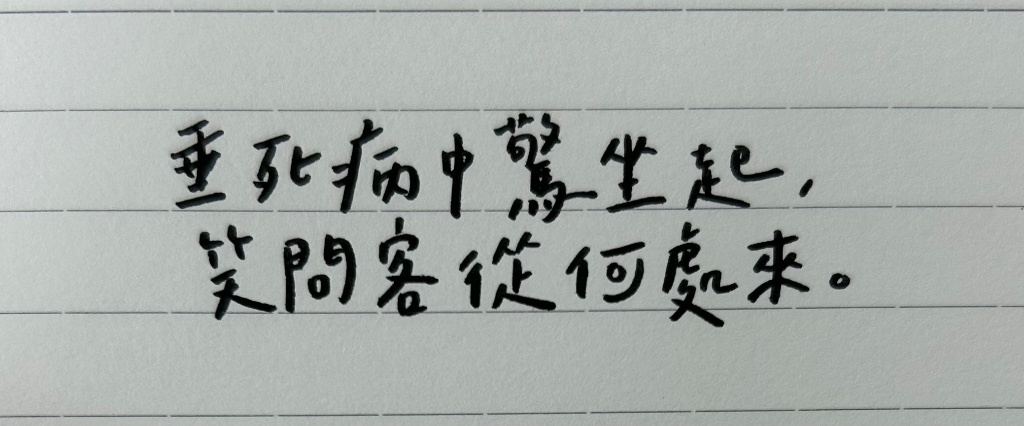 垂死病中驚坐起，
笑問客從何處來。